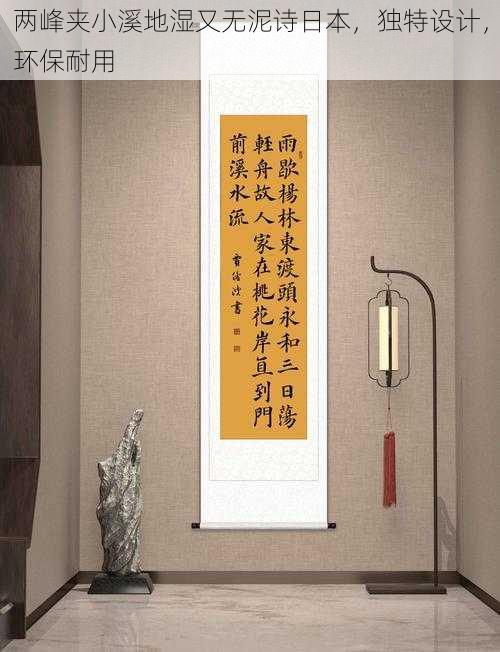 两峰夹小溪地湿又无泥诗日本，独特设计，
环保耐用
雨歇楊林東渡頭永和三日蕩
輕舟故人家在桃花岸直到門
前溪水流